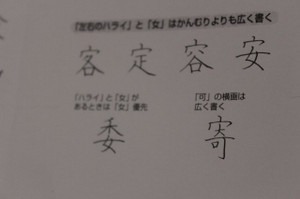 「左右のハライ」と「女」はかんむりよりも広く書く
客 定 容 安
「ハライ」と「女」が
あるときは「女」優先
委
「可」の横画は
広く書く
寄